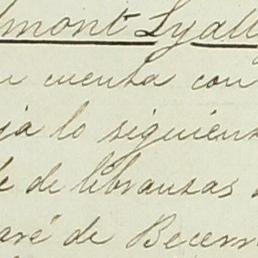 lmont Lyall
cuenta con
ja lo siguient
de libranzas
aré de Becerr